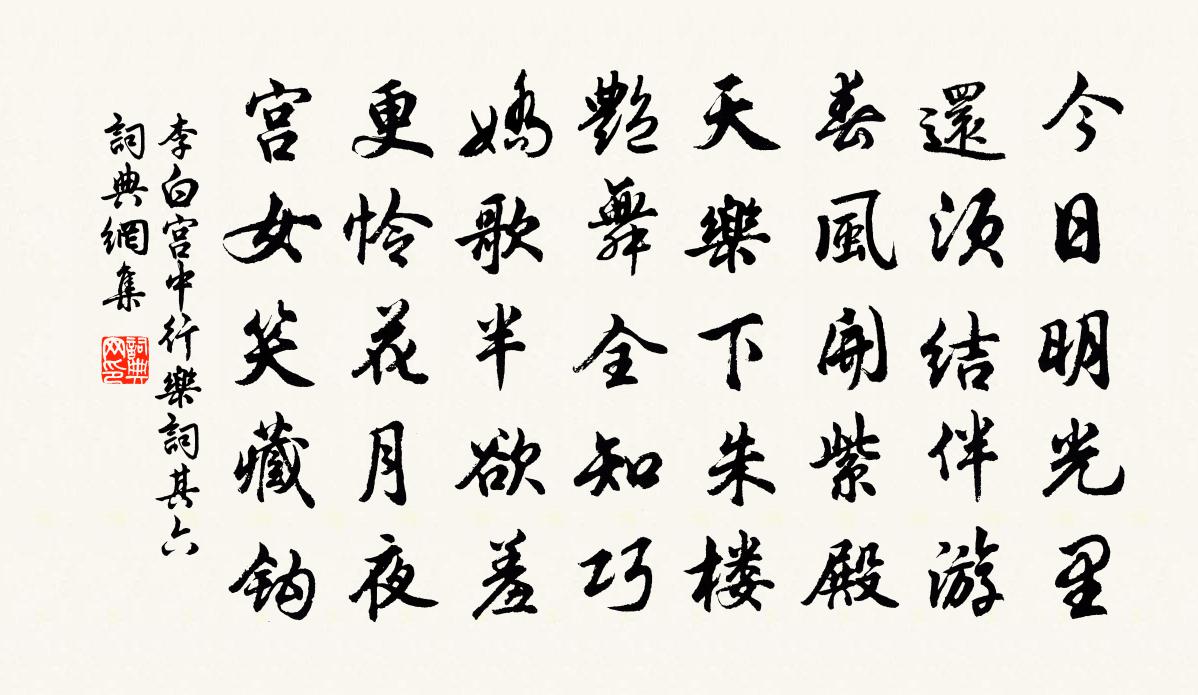 今日明光里
還須結伴游
春風開紫殿
天樂下朱楼
艷舞全知巧
嬌歌半欲羞
更怜花月夜
宮女笑藏鈎
李白宮中行樂詞其六
詞典網集
詞典
网印